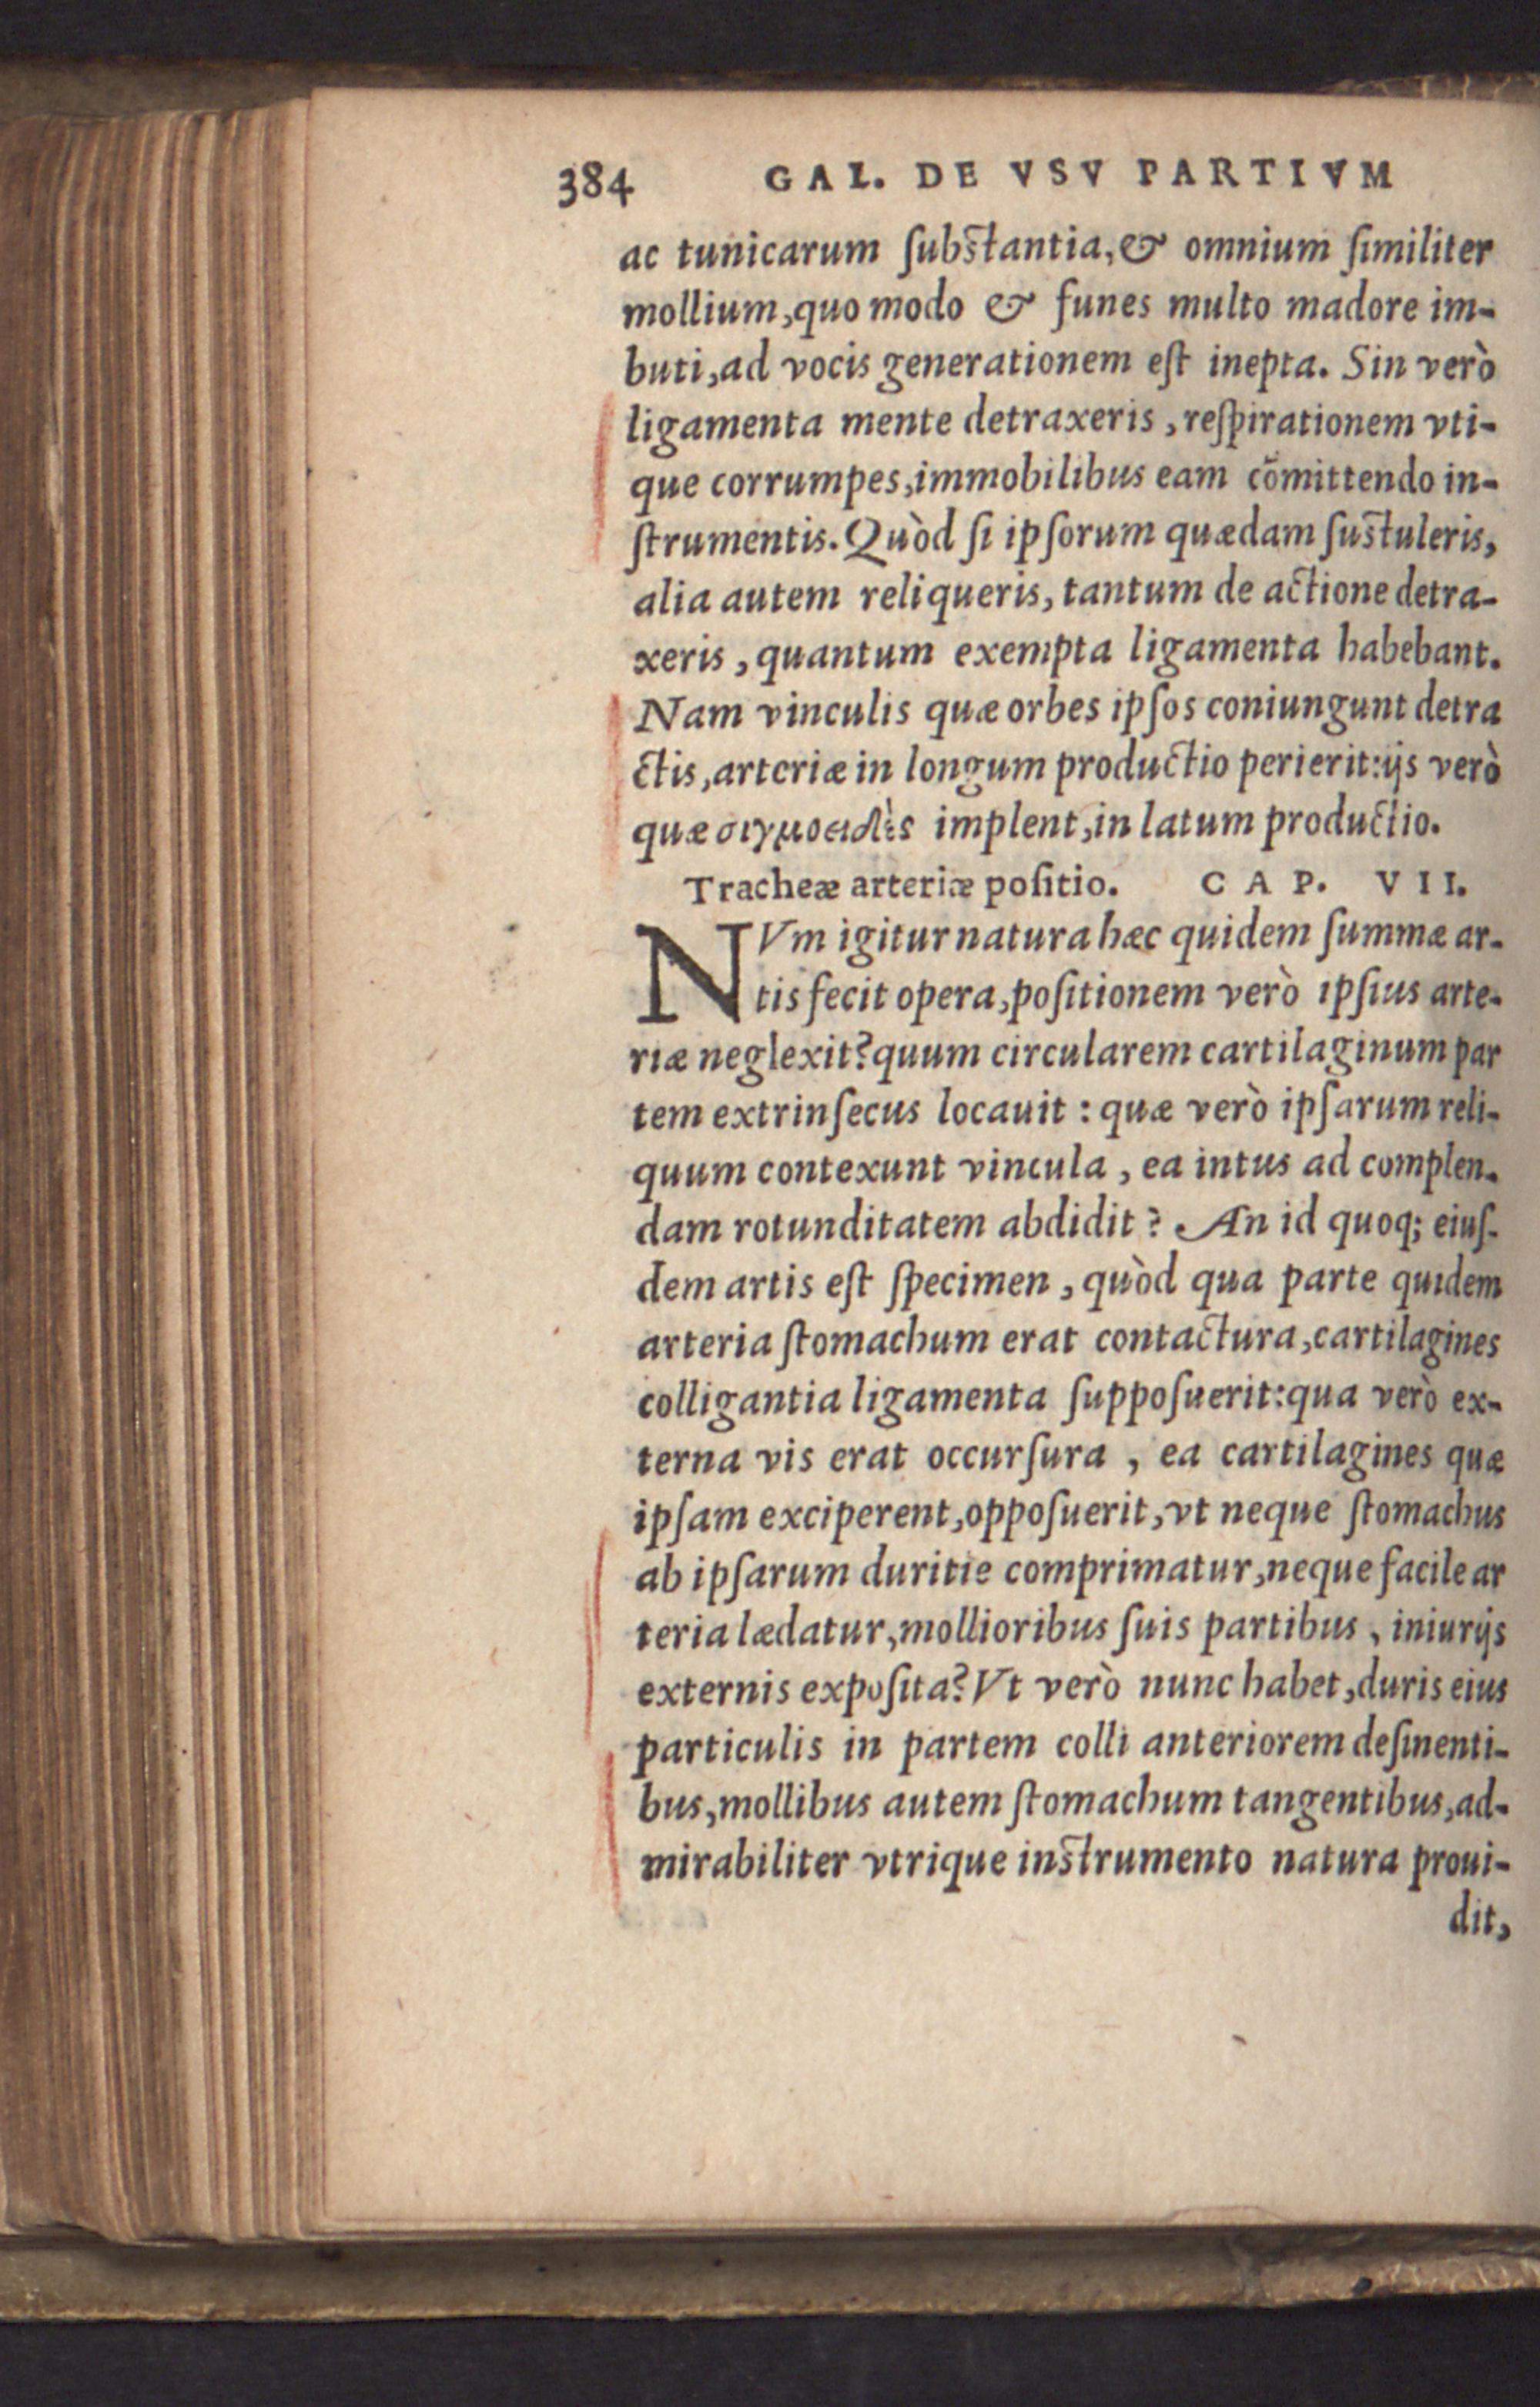 384 GAL. DE VSV PARTIVM
ac tunicarum ſubſtantia, & omnium ſimiliter
mollium, quo modo & funes multo madore im-
buti, ad vocis generationem eſt inepta. Sin verò
ligamenta mente detraxeris, reſpirationem vti-
que corrumpes, immobilibus eam cõmittendo in-
ſtrumentis. Quòd ſi ipſorum quædam ſuſtuleris,
alia autem reliqueris, tantum de actione detra-
xeris, quantum exempta ligamenta habebant.
Nam vinculis quæ orbes ipſos coniungunt detra
ctis, arteriæ in longum productio perierit: ijs verò
quæ σιγμοειδὲς implent, in latum productio.
Tracheæ arteriæ poſitio. CAP. VII.
NVm igitur natura hæc quidem ſummæ ar-
tis fecit opera, poſitionem verò ipſius arte-
riæ neglexit? quum circularem cartilaginum par
tem extrinſecus locauit: quæ verò ipſarum reli-
quum contexunt vincula, ea intus ad complen-
dam rotunditatem abdidit? An id quoq; eiuſ-
dem artis eſt ſpecimen, quòd qua parte quidem
arteria ſtomachum erat contactura, cartilagines
colligantia ligamenta ſuppoſuerit: qua verò ex-
terna vis erat occurſura, ea cartilagines quæ
ipſam exciperent, oppoſuerit, vt neque ſtomachus
ab ipſarum duritie comprimatur, neque facile ar
teria lædatur, mollioribus ſuis partibus, iniurijs
externis expoſita? Vt verò nunc habet, duris eius
particulis in partem colli anteriorem deſinenti-
bus, mollibus autem ſtomachum tangentibus, ad-
mirabiliter vtrique inſtrumento natura proui-
dit,